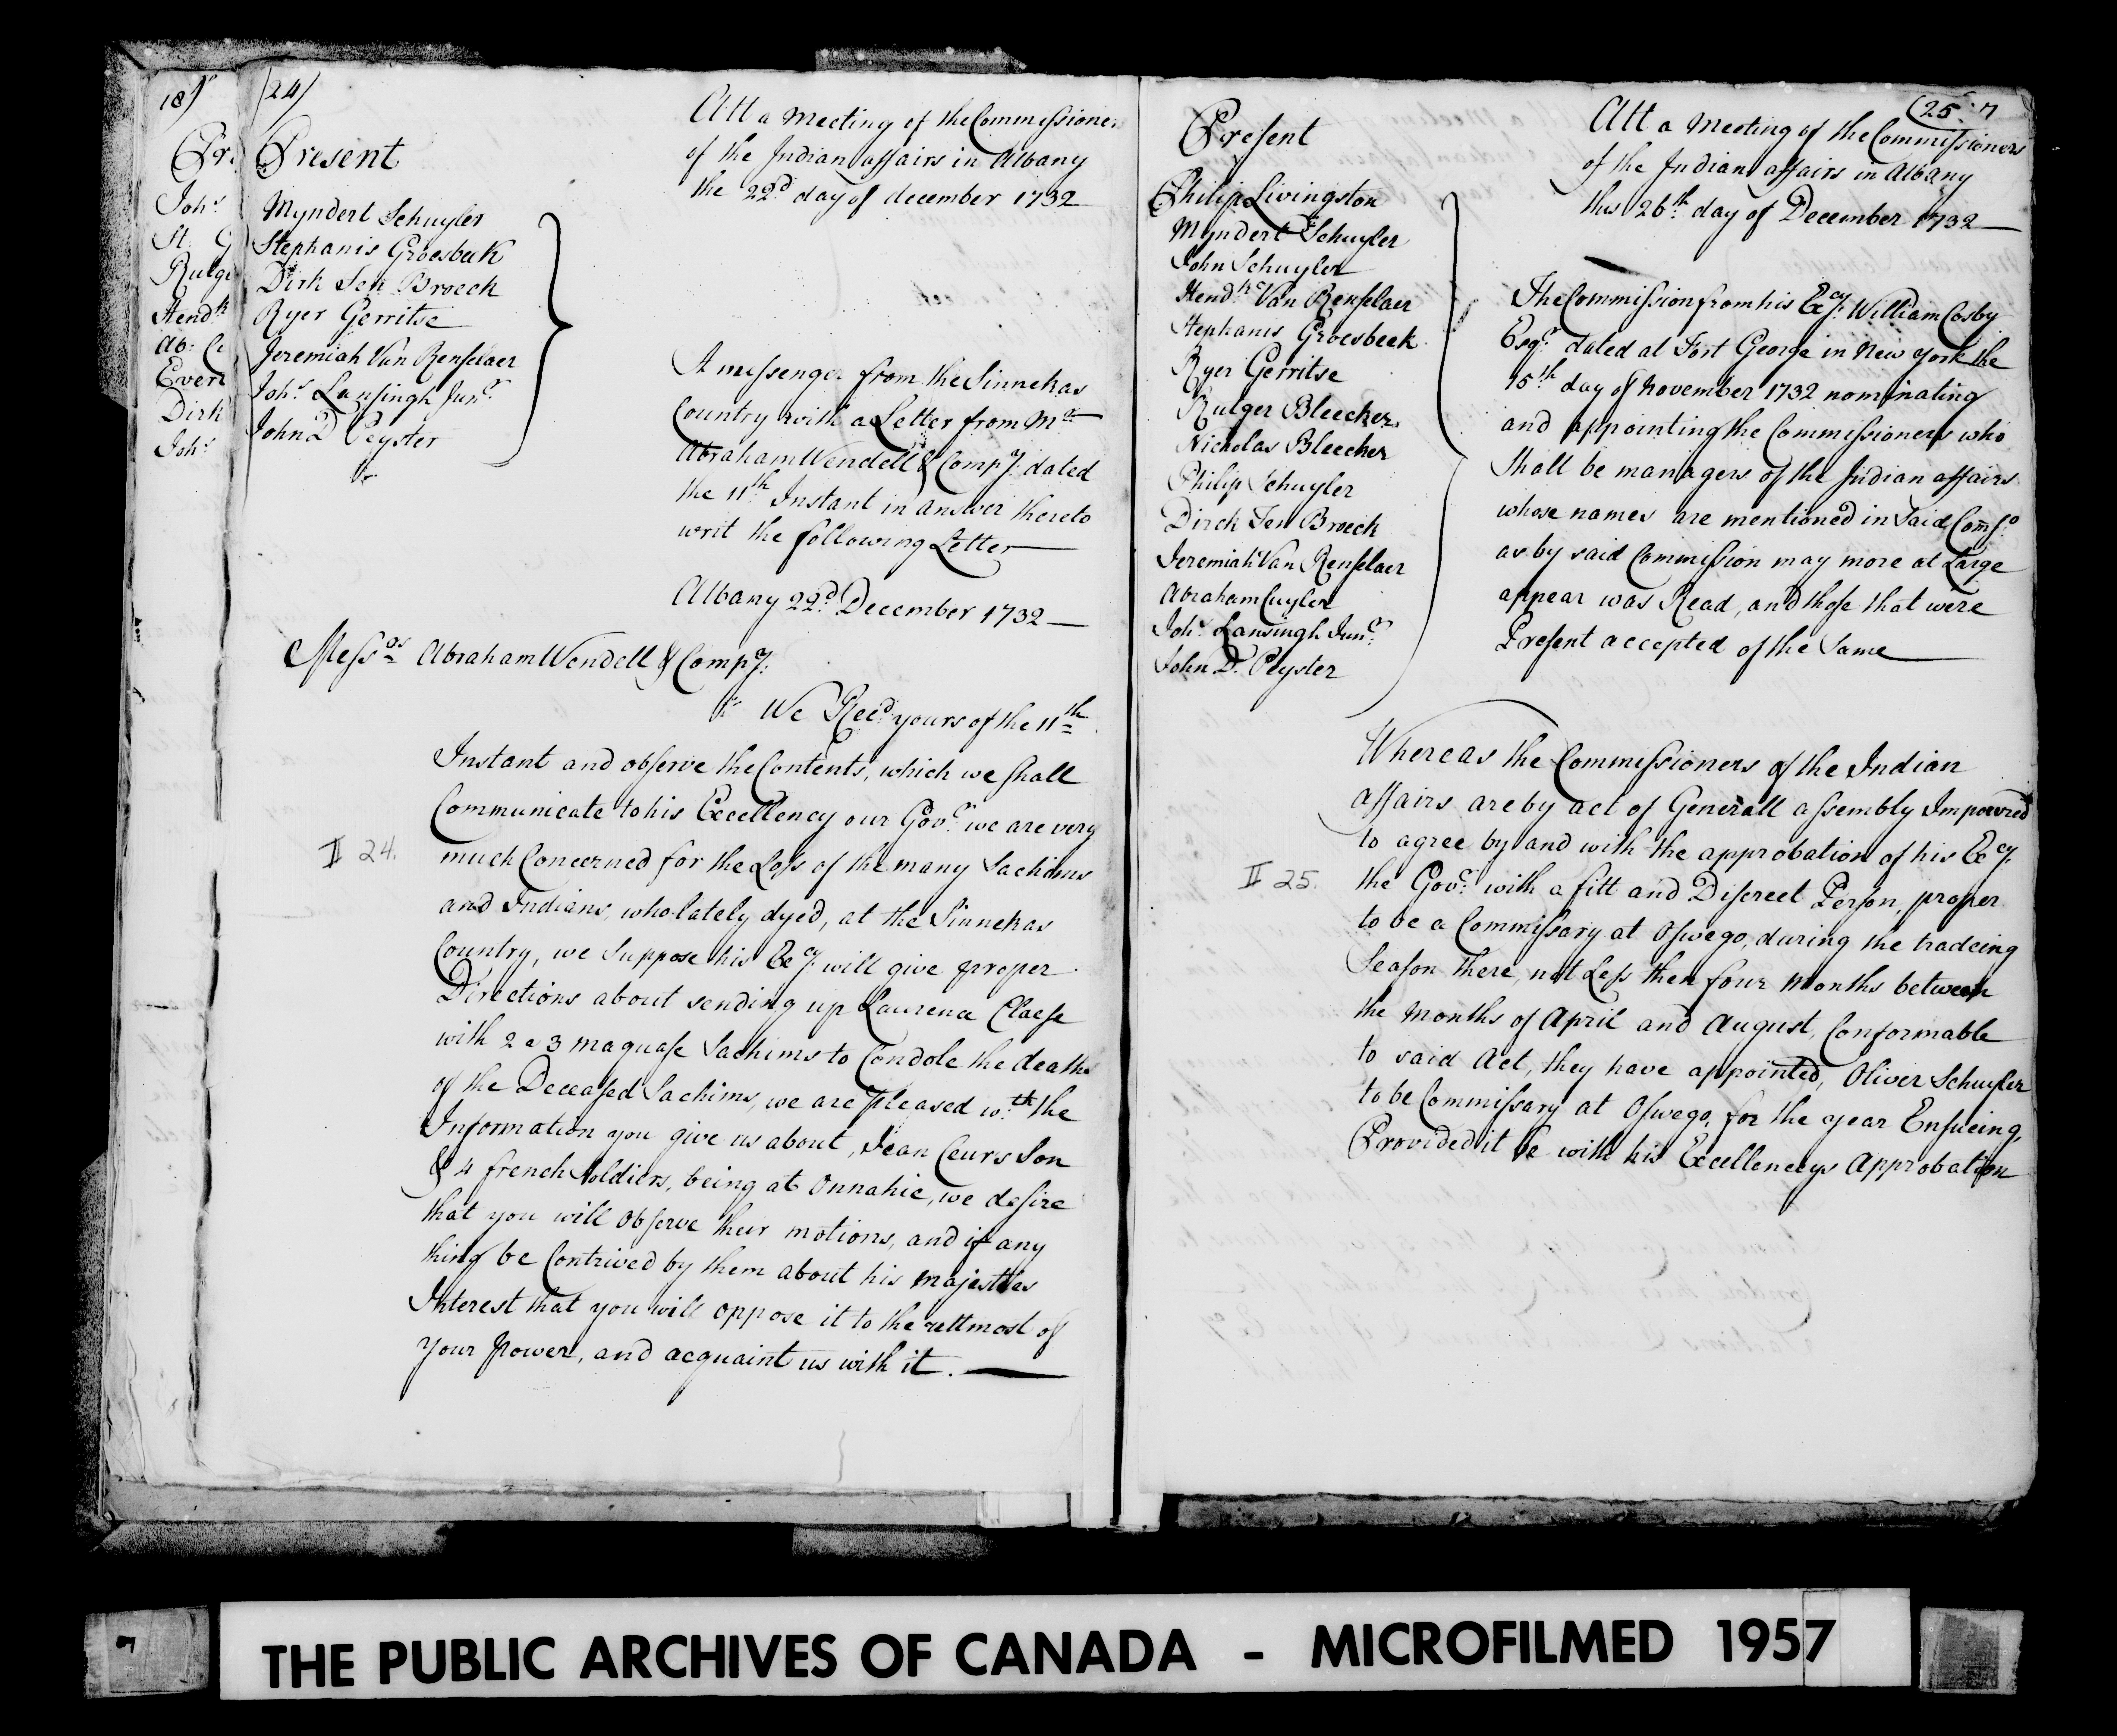 18)
Pr
Joh:s
St. G
Rutge
Hend:k
Ab: C
Evert
Dirk
Joh:s
(24)
Present
Myndert Schuyler
Stephanis Groesbeek
Dirk Ten Broeck
Ryer Gerritse
Jeremiah Van Renselaer
Joh:s Lansingh Jun:r
John D Peyster
Att a Meeting of the Commissioners
of the Indian affairs in Albany
the 22:d day of december 1732
A messenger from the Sinnekas
Country with a Letter from M:r
Abraham Wendell & Comp:y dated
the 11:th Instant in answer thereto
writ the following Letter
Albany 22:d December 1732
Mess:rs Abraham Wendell & Comp:y:
We Rec:d yours of the 11:th
Instant and observe the Contents, which we shall
Communicate to his Excellency our Gov:r we are very
much Concerned for the Loss of the many Sachims
and Indians, who lately dyed, at the Sinnekas
Country, we Suppose his Ex:cy will give proper
Directions about sending up Laurence Claese
with 2 a 3 maquase Sachims to Condole the death
of the Deceased Sachims, we are pleased w:th the
Information you give us about, Jean Ceurs Son
& 4 french Soldiers, being at Onnahie, we desire
that you will observe their motions, and if any
thing be Contrived by them about his majesties
Interest that you will oppose it to the uttmost of
your power, and acquaint us with it.
II 24.
(25:
Present
Philip Livingston
Myndert Schuyler
John Schuyler
Hend:k Van Renselaer
Stephanis Groesbeek
Ryer Gerritse
Rutger Bleecker
Nicholas Bleecker
Philip Schuyler
Dirck Ten Broeck
Jeremiah Van Renselaer
Abraham Cuyler
Joh:s Lansingh Jun:r
John D. Peyster
Att a Meeting of the Commissioners
of the Indian affairs in Albany
this 26:th day of December 1732
The Commission from his Ex:cy William Cosby
Esq:r dated at Fort George in New york the
15:th day of November 1732 nominating
and appointing the Commissioners who
Shall be managers of the Indian affairs
whose names are mentioned in Said Coms:o
as by said Commission may more at Large
appear was Read, and those that were
Present accepted of the Same
Whereas the Commissioners of the Indian
affairs are by act of Generall assembly Impowred
to agree by and with the approbation of his Ex:cy
the Gov:r with a fitt and Discreet Person, proper
to be a Commissary at Oswego, during the tradeing
Season there, not Less then four Months between
the Months of April and August, Conformable
to said Act, they have appointed, Oliver Schuyler
to be Commissary at Oswego, for the year Ensueing,
Provided it be with his Excellencys Approbation
II 25.
THE PUBLIC ARCHIVES OF CANADA - MICROFILMED 1957